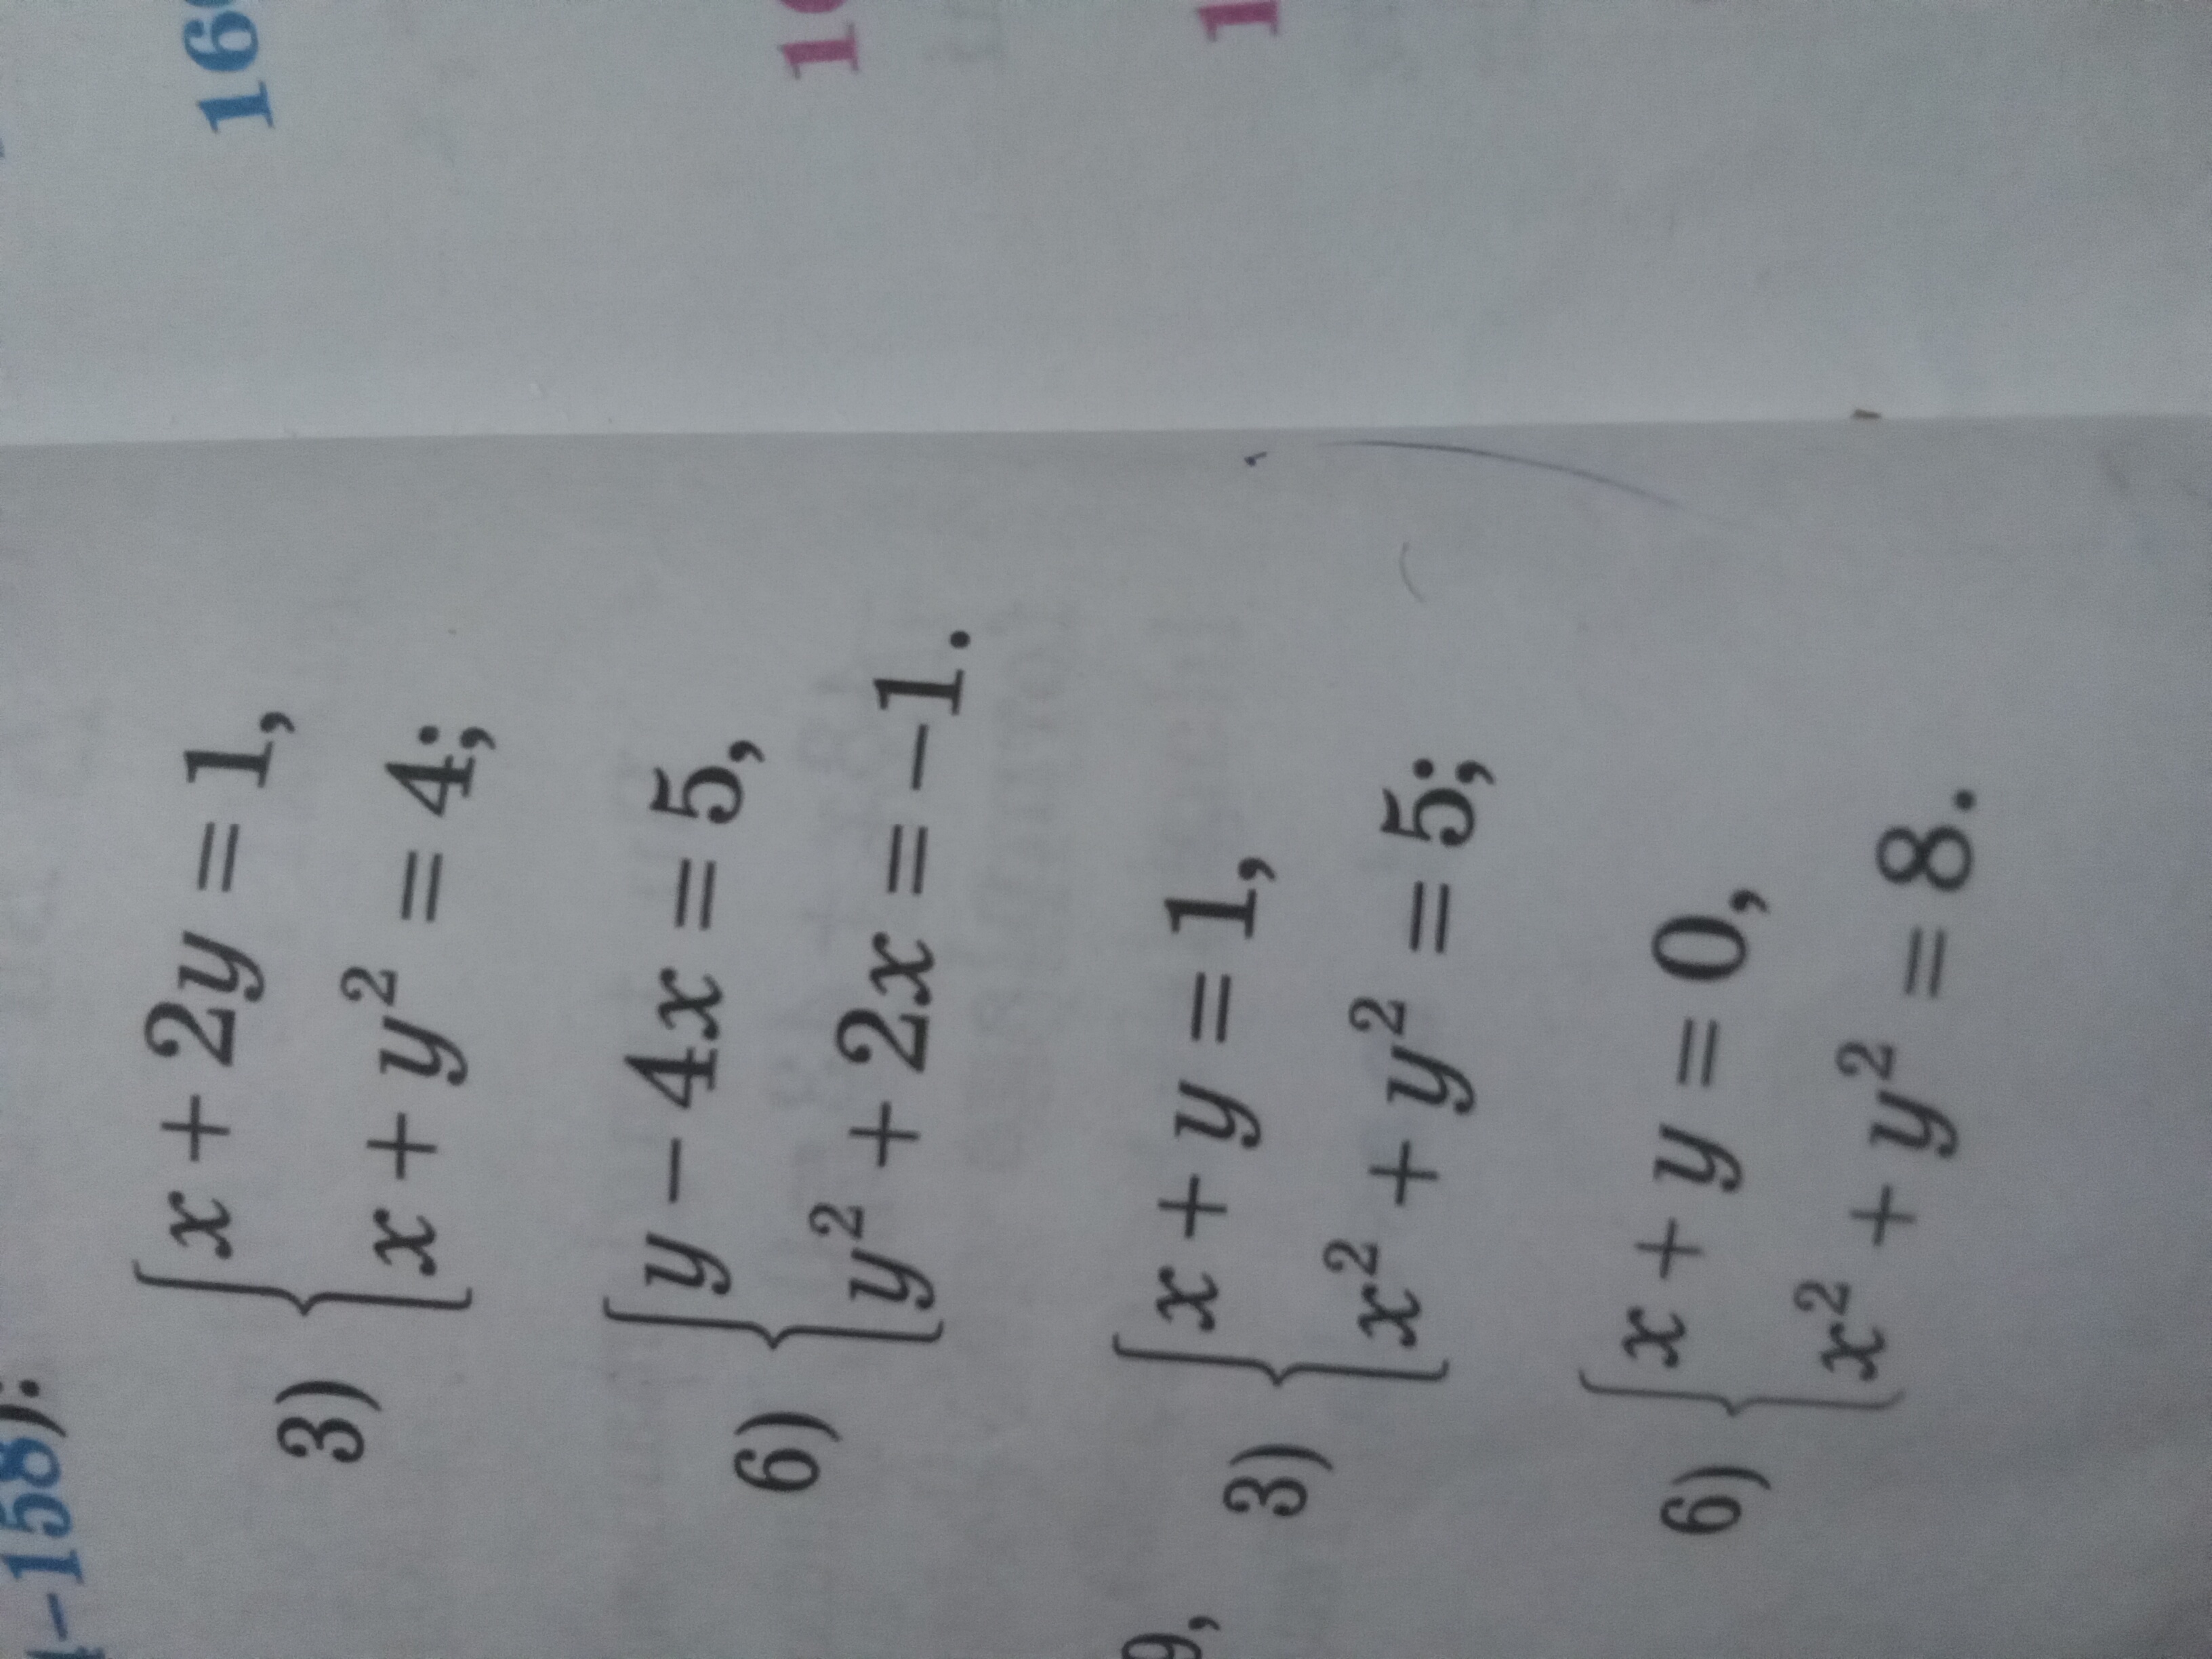 4–158):
3) { x + 2y = 1,
x + y² = 4;
6) { y – 4x = 5,
y² + 2x = –1.
9,
3) { x + y = 1,
x² + y² = 5;
6) { x + y = 0,
x² + y² = 8.
16
1
1